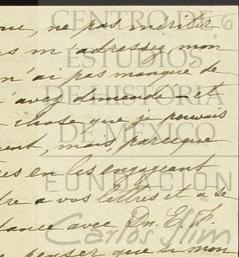 ne pas mériter
m'adressez mon
n'ai pas manqué de
avez demandé et
chose que je pouvais
mais, parce que
en les engageant
à vos lettres et à se
avec Dn. E. P.
penser que si mon
CENTRO DE
ESTUDIOS
DE HISTORIA
DE MÉXICO
FUNDACIÓN
Carlos Slim